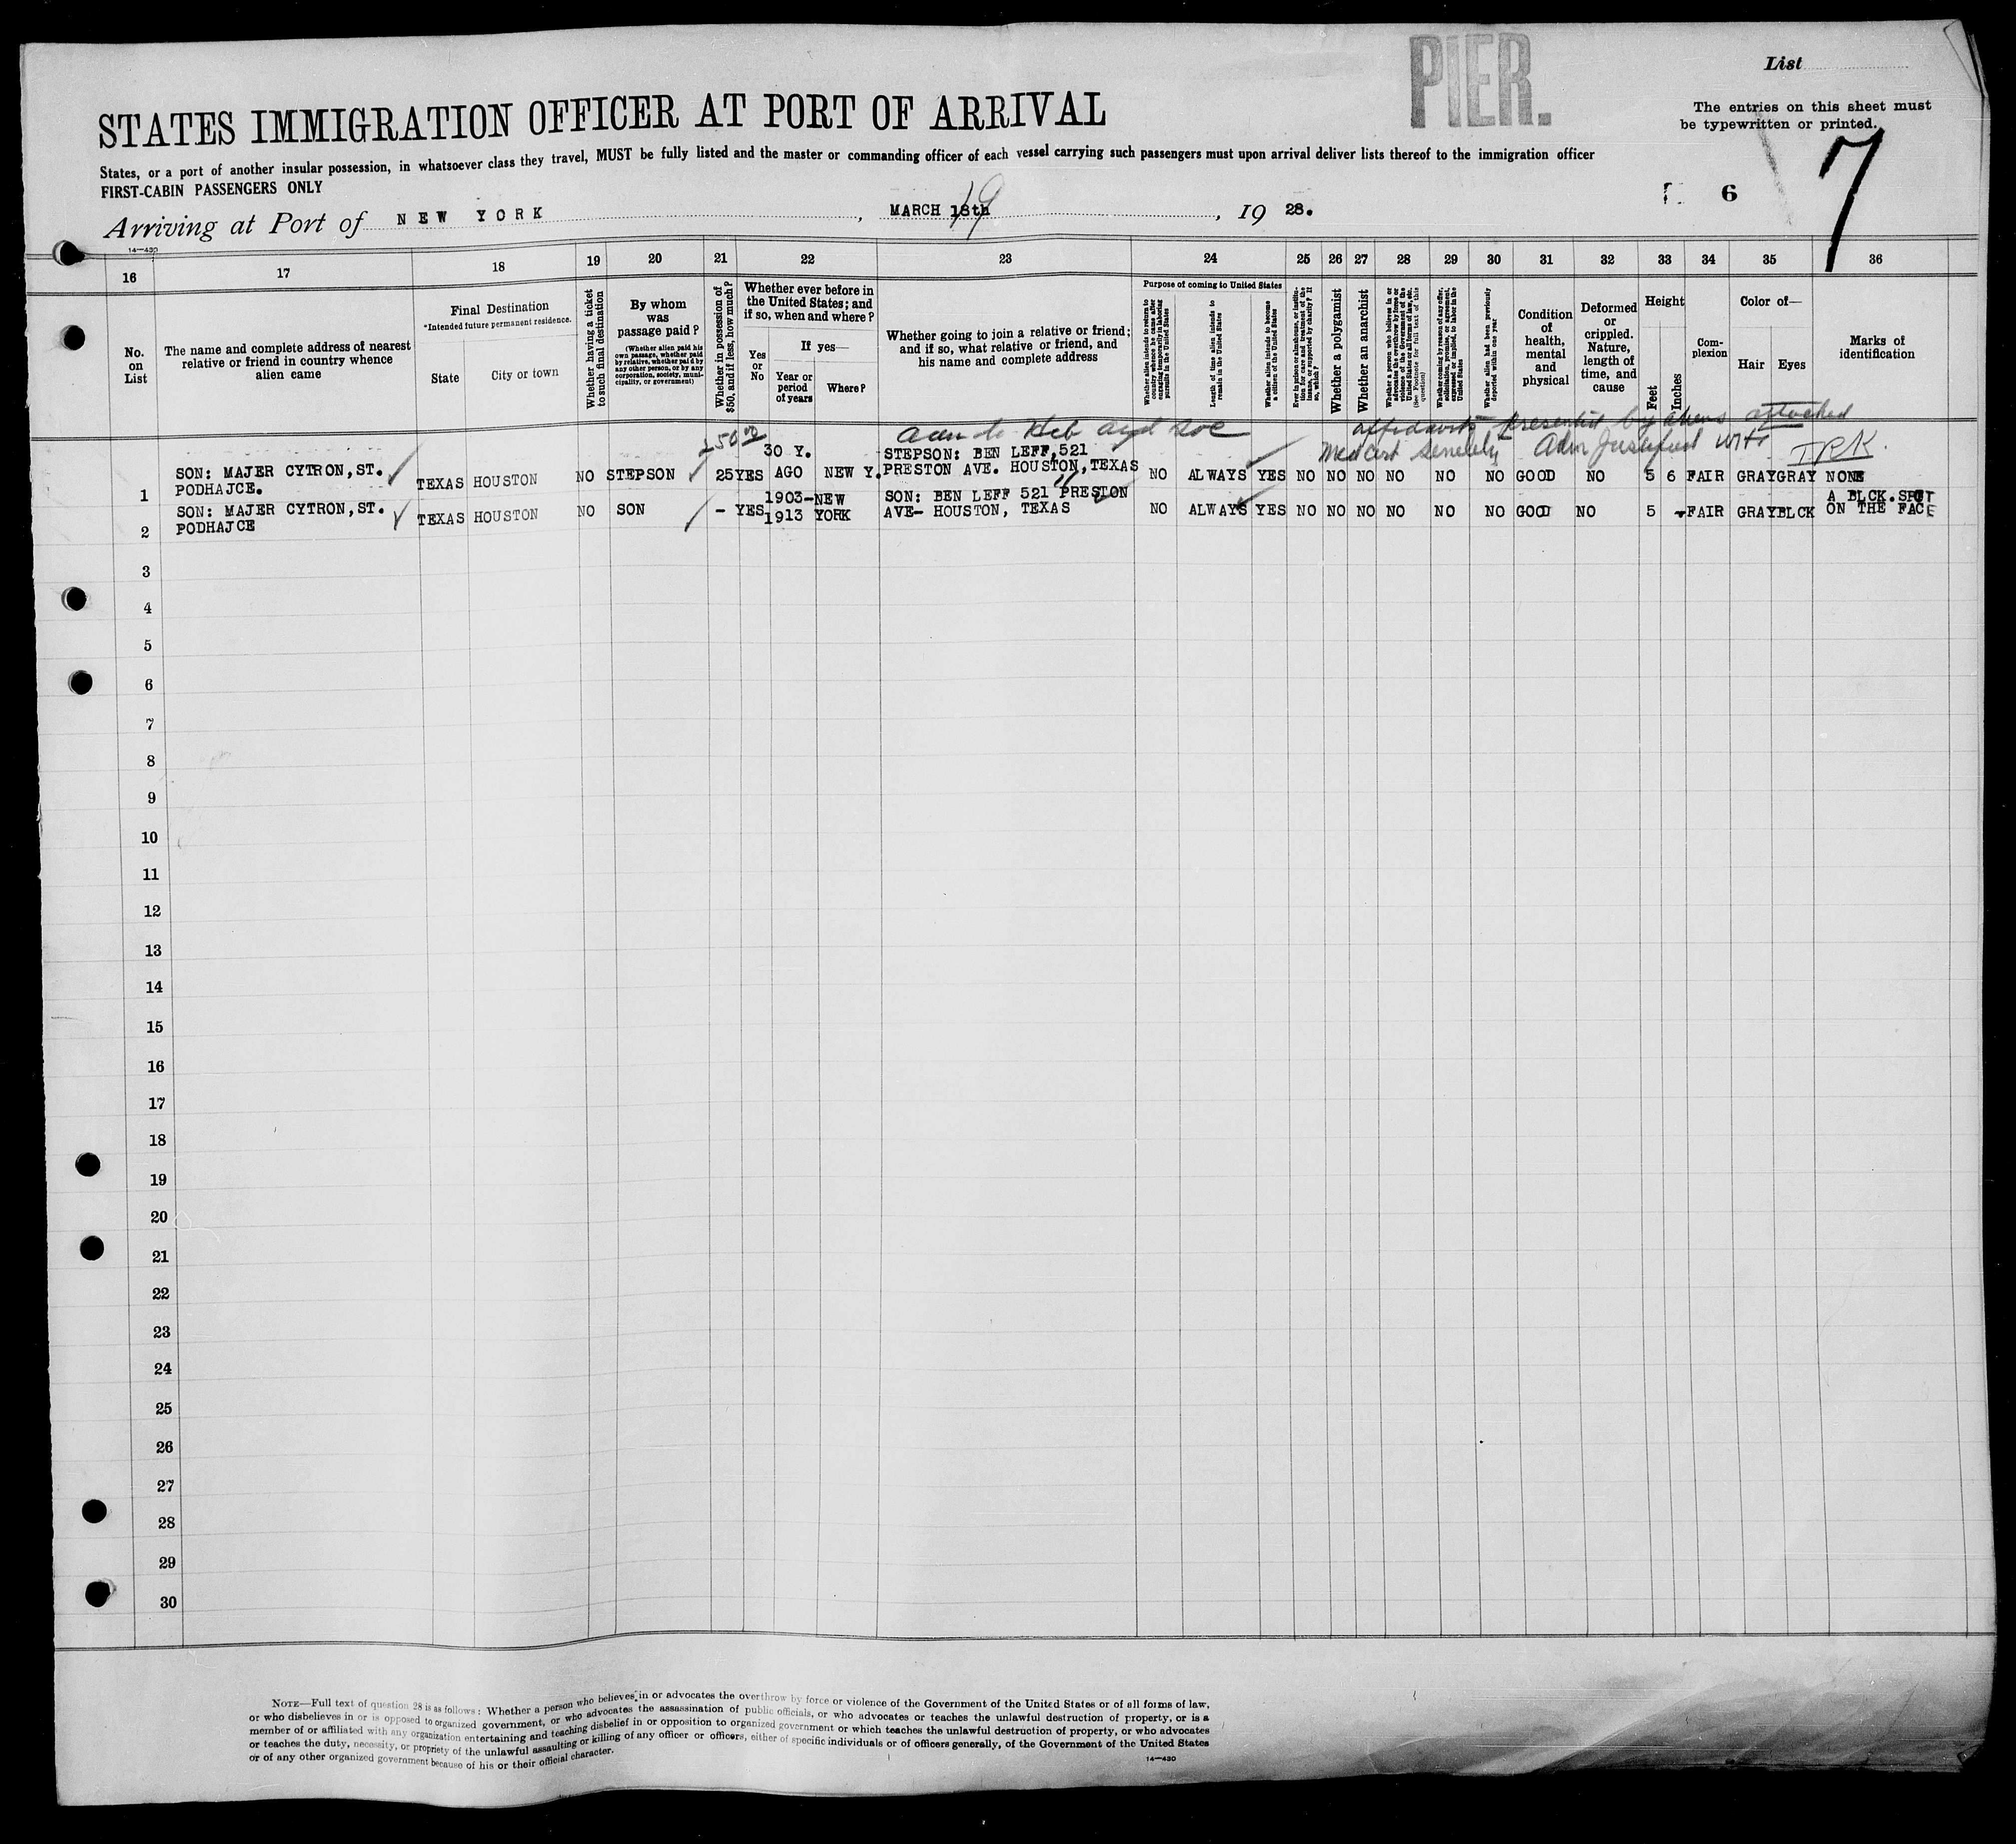 PIER.
List
STATES IMMIGRATION OFFICER AT PORT OF ARRIVAL
The entries on this sheet must
be typewritten or printed.
States, or a port of another insular possession, in whatsoever class they travel, MUST be fully listed and the master or commanding officer of each vessel carrying such passengers must upon arrival deliver lists thereof to the immigration officer
FIRST-CABIN PASSENGERS ONLY
6
7
Arriving at Port of NEW YORK, MARCH 18th 19, 1928.
14—430
16 17 18 19 20 21 22 23 24 25 26 27 28 29 30 31 32 33 34 35 36
No. on List
The name and complete address of nearest relative or friend in country whence alien came
Final Destination
*Intended future permanent residence.
State
City or town
Whether having a ticket to such final destination
By whom was passage paid?
(Whether alien paid his own passage, whether paid by relative, whether paid by any other person, or by any corporation, society, municipality, or government)
Whether in possession of $50, and if less, how much?
Whether ever before in the United States; and if so, when and where?
Yes or No
If yes—
Year or period of years
Where?
Whether going to join a relative or friend; and if so, what relative or friend, and his name and complete address
Purpose of coming to United States
Whether alien intends to return to country whence he came after engaging temporarily in laboring pursuits in the United States
Length of time alien intends to remain in the United States
Whether alien intends to become a citizen of the United States
Ever in prison or almshouse, or institution for care and treatment of the insane, or supported by charity? If so, which?
Whether a polygamist
Whether an anarchist
Whether a person who believes in or advocates the overthrow by force or violence of the Government of the United States or all forms of law, etc. (See footnote for full text of this question)
Whether coming by reason of any offer, solicitation, promise, or agreement, expressed or implied, to labor in the United States
Whether alien had been previously deported within one year
Condition of health, mental and physical
Deformed or crippled. Nature, length of time, and cause
Height
Feet
Inches
Complexion
Color of—
Hair Eyes
Marks of identification
affidavits presented by aliens attached
IRK.
1 SON: MAJER CYTRON, ST. PODHAJCE. TEXAS HOUSTON NO STEPSON 25 YES 30 Y. AGO NEW Y. STEPSON: BEN LEFF, 521 PRESTON AVE. HOUSTON, TEXAS NO ALWAYS YES NO NO NO NO NO NO GOOD NO 5 6 FAIR GRAY GRAY NONE
2 SON: MAJER CYTRON, ST. PODHAJCE TEXAS HOUSTON NO SON - YES 1903-1913 NEW YORK SON: BEN LEFF 521 PRESTON AVE- HOUSTON, TEXAS NO ALWAYS YES NO NO NO NO NO NO GOOD NO 5 - FAIR GRAY BLCK A BLCK. SPOT ON THE FACE
3
4
5
6
7
8
9
10
11
12
13
14
15
16
17
18
19
20
21
22
23
24
25
26
27
28
29
30
NOTE—Full text of question 28 is as follows: Whether a person who believes in or advocates the overthrow by force or violence of the Government of the United States or of all forms of law,
or who disbelieves in or is opposed to organized government, or who advocates the assassination of public officials, or who advocates or teaches the unlawful destruction of property, or is a
member of or affiliated with any organization entertaining and teaching disbelief in or opposition to organized government or which teaches the unlawful destruction of property, or who advocates
or teaches the duty, necessity, or propriety of the unlawful assaulting or killing of any officer or officers, either of specific individuals or of officers generally, of the Government of the United States
or of any other organized government because of his or their official character.
14—430